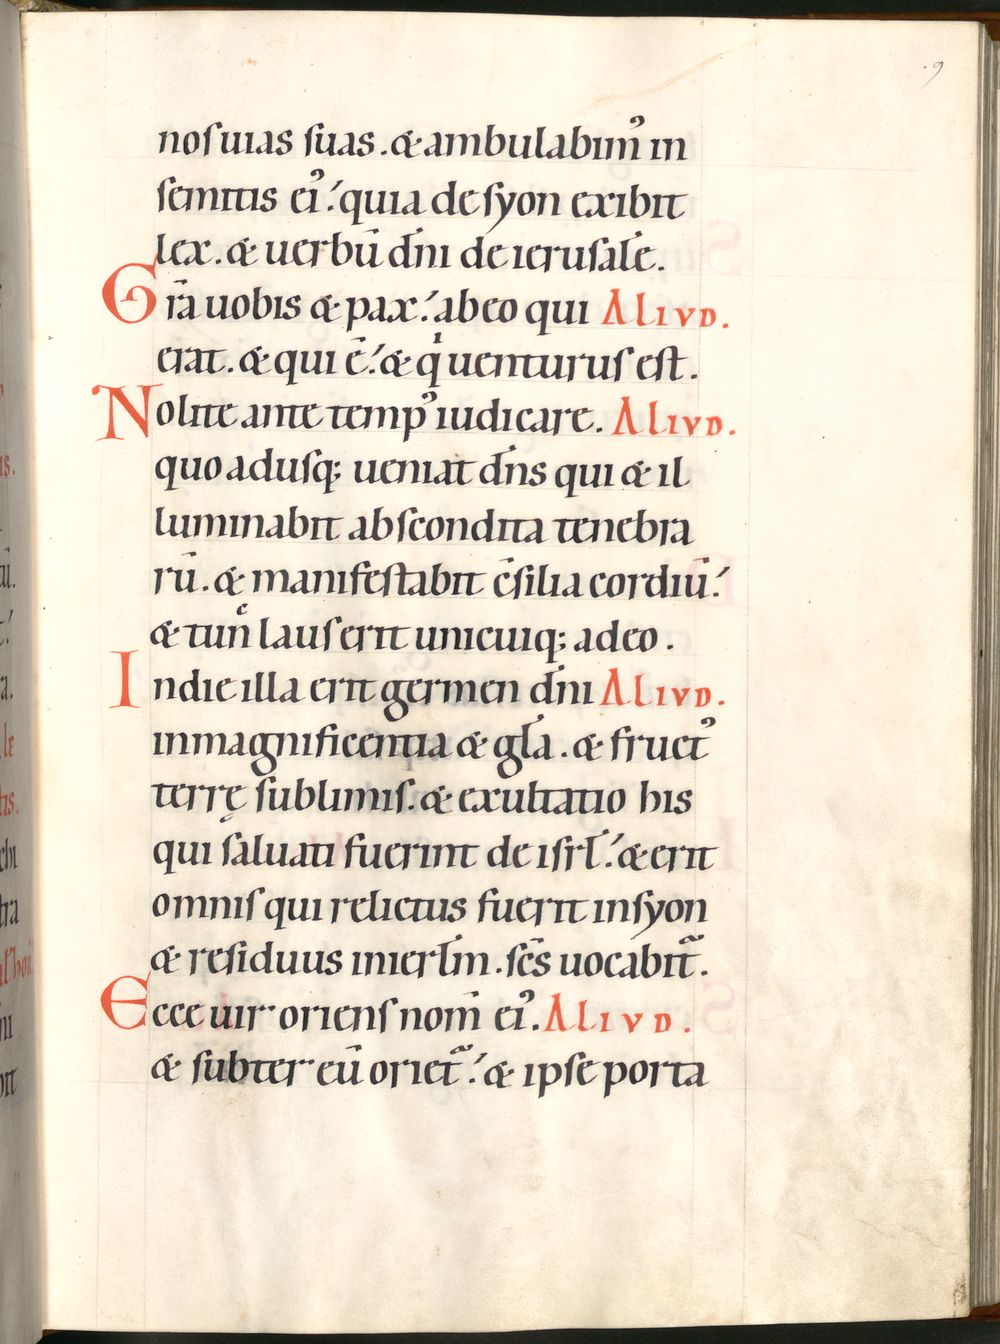 .9
noſ uias ſuas. & ambulabimꝰ in
ſemitis eiꝰ. quia de ſyon exibit
lex. & uerbū dn̄i de ieruſalē.
Gr̄a uobis & pax. abeo qui ALIVD.
erat. & qui ē. & qͥ uenturuſ eſt.
Nolite ante tempꝰ iudicare. ALIVD.
quo aduſq; ueniat dn̄s qui & il
luminabit abſcondita tenebra
rū. & manifeſtabit c̄ſilia cordiū.
& tūn̄ͨ lauſ erit unicuiq; adeo.
In die illa erit germen dn̄i ALIVD.
inmagnificentia & gl̄a. & fructꝰ
terrę ſublimiſ. & exultatio his
qui ſaluati fuerint de iſrl̄. & erit
omniſ qui relictus fuerit inſyon
& reſiduus inierl̄m. ſc̄s uocabitᷓ.
Ecce uir orienſ nom̄ eiꝰ. ALIVD.
& ſubter eū orietᷓ. & ipſe porta